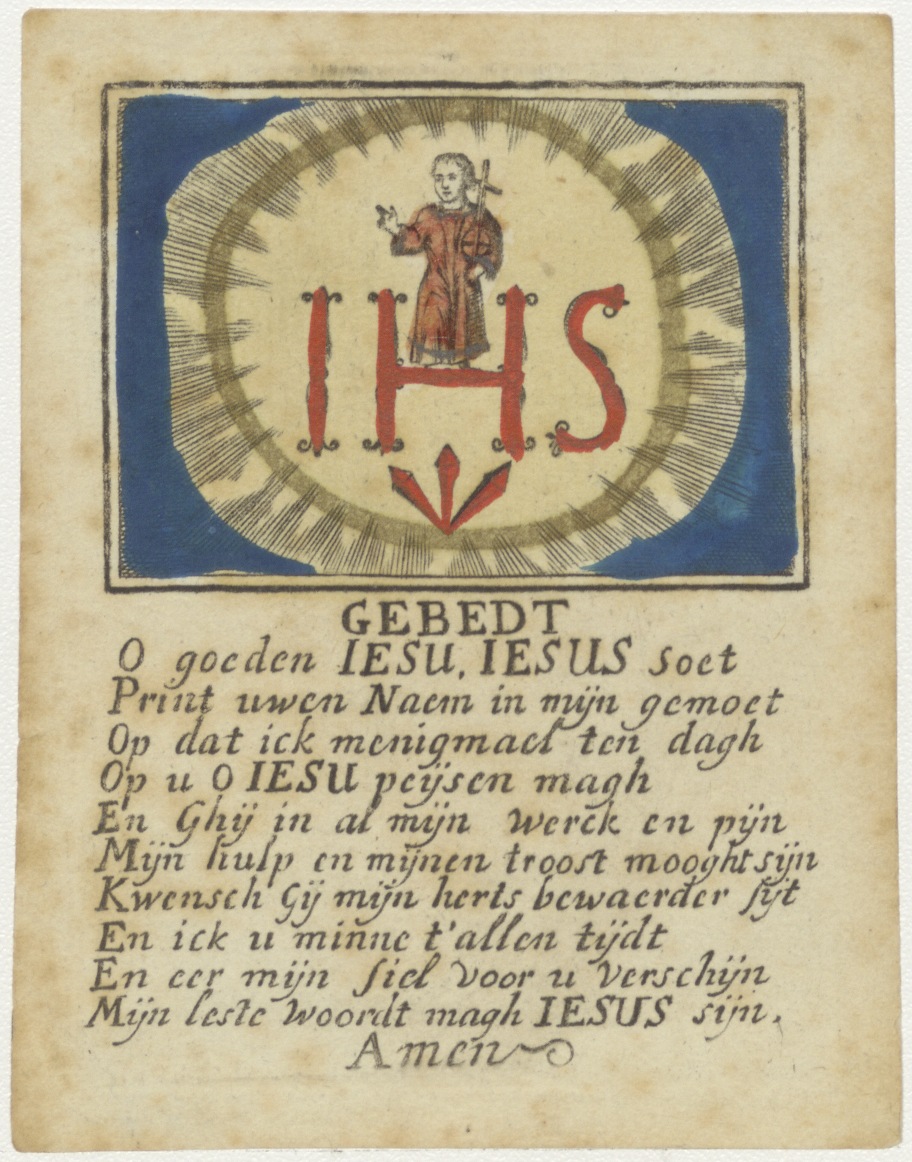 IHS
GEBEDT
O goeden IESU, IESUS soet
Print uwen Naem in mijn gemoet
Op dat ick menigmael ten dagh
Op u O IESU peijsen magh
En Ghij in al mijn werck en pijn
Mijn hulp en mijnen troost mooght sijn
Kwensch Gij mijn herts bewaerder sijt
En ick u minne t'allen tijdt
En eer mijn siel voor u verschijn
Mijn leste woordt magh IESUS sijn.
Amen